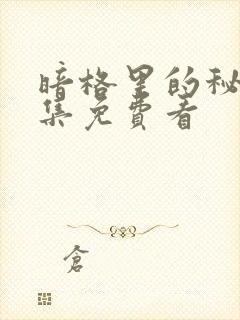 暗格里的秘
集免费看
倉